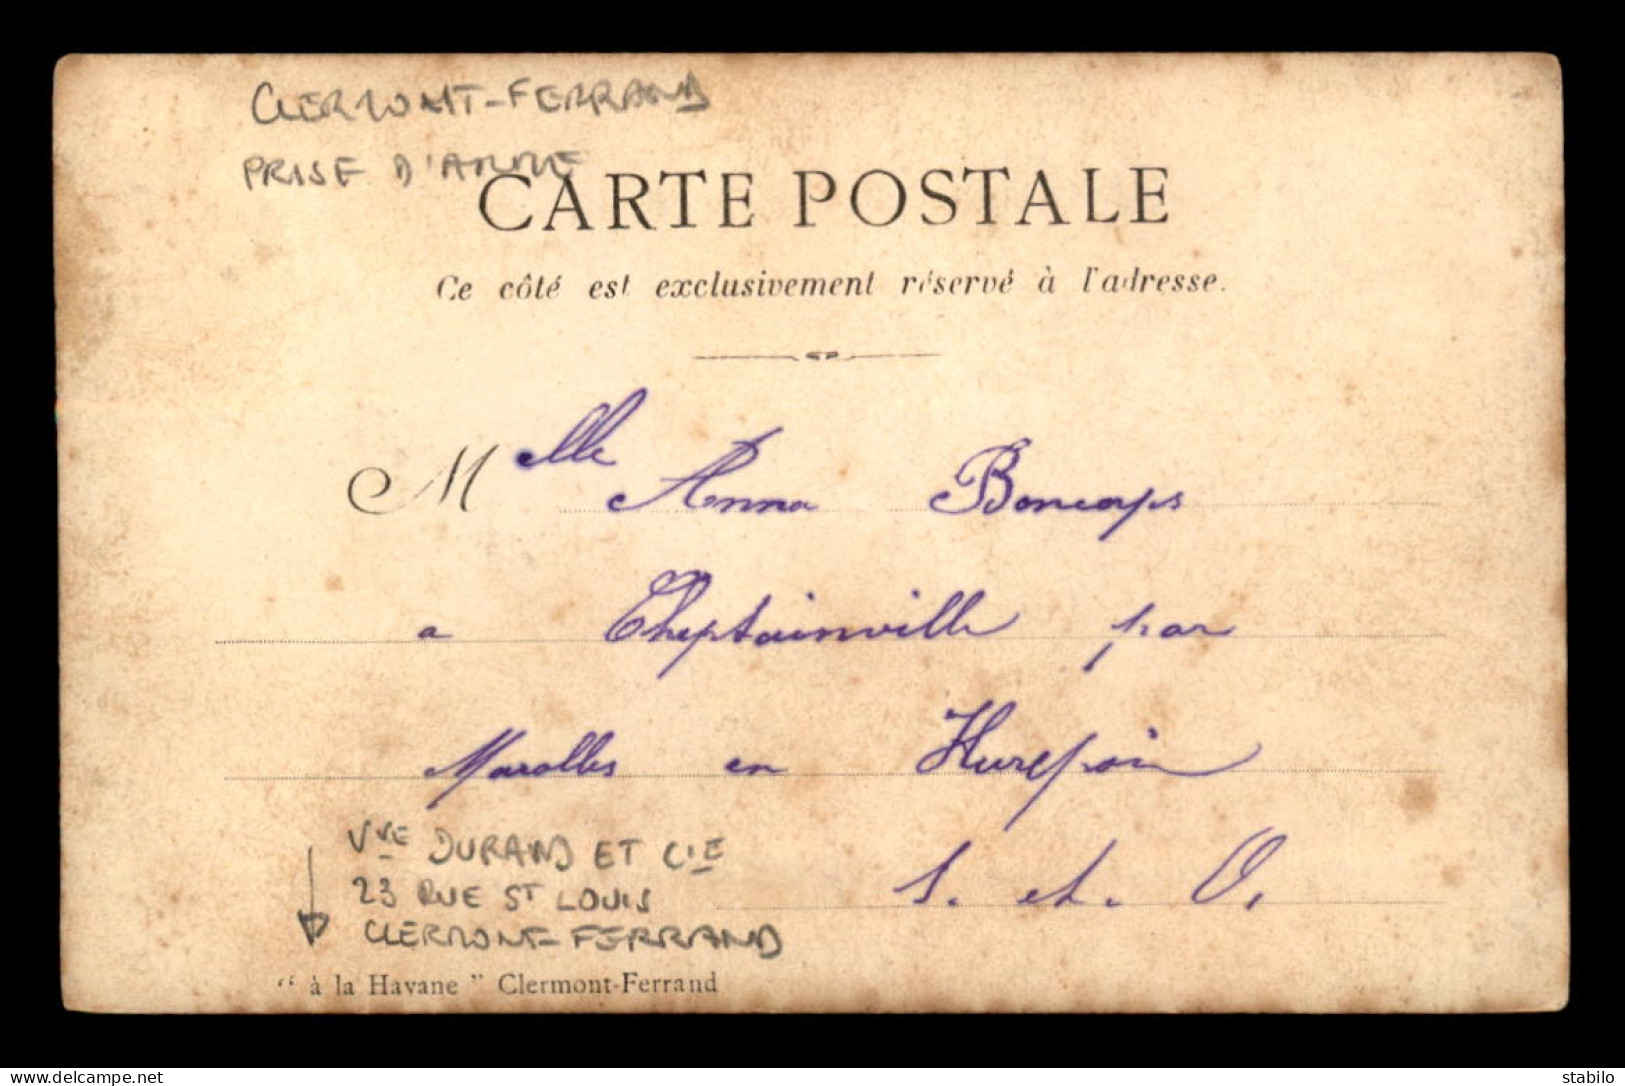 CLERMONT-FERRAND
PRISE D'ARME
CARTE POSTALE
Ce côté est exclusivement réservé à l'adresse.
Melle Anna Boncorps
a Cheptainville par
Marolles en Hurepoin
S. et. O.
Vve DURAND ET CIE
23 RUE ST LOUIS
CLERMONT-FERRAND
“ à la Havane ” Clermont-Ferrand
www.delcampe.net
stabilo